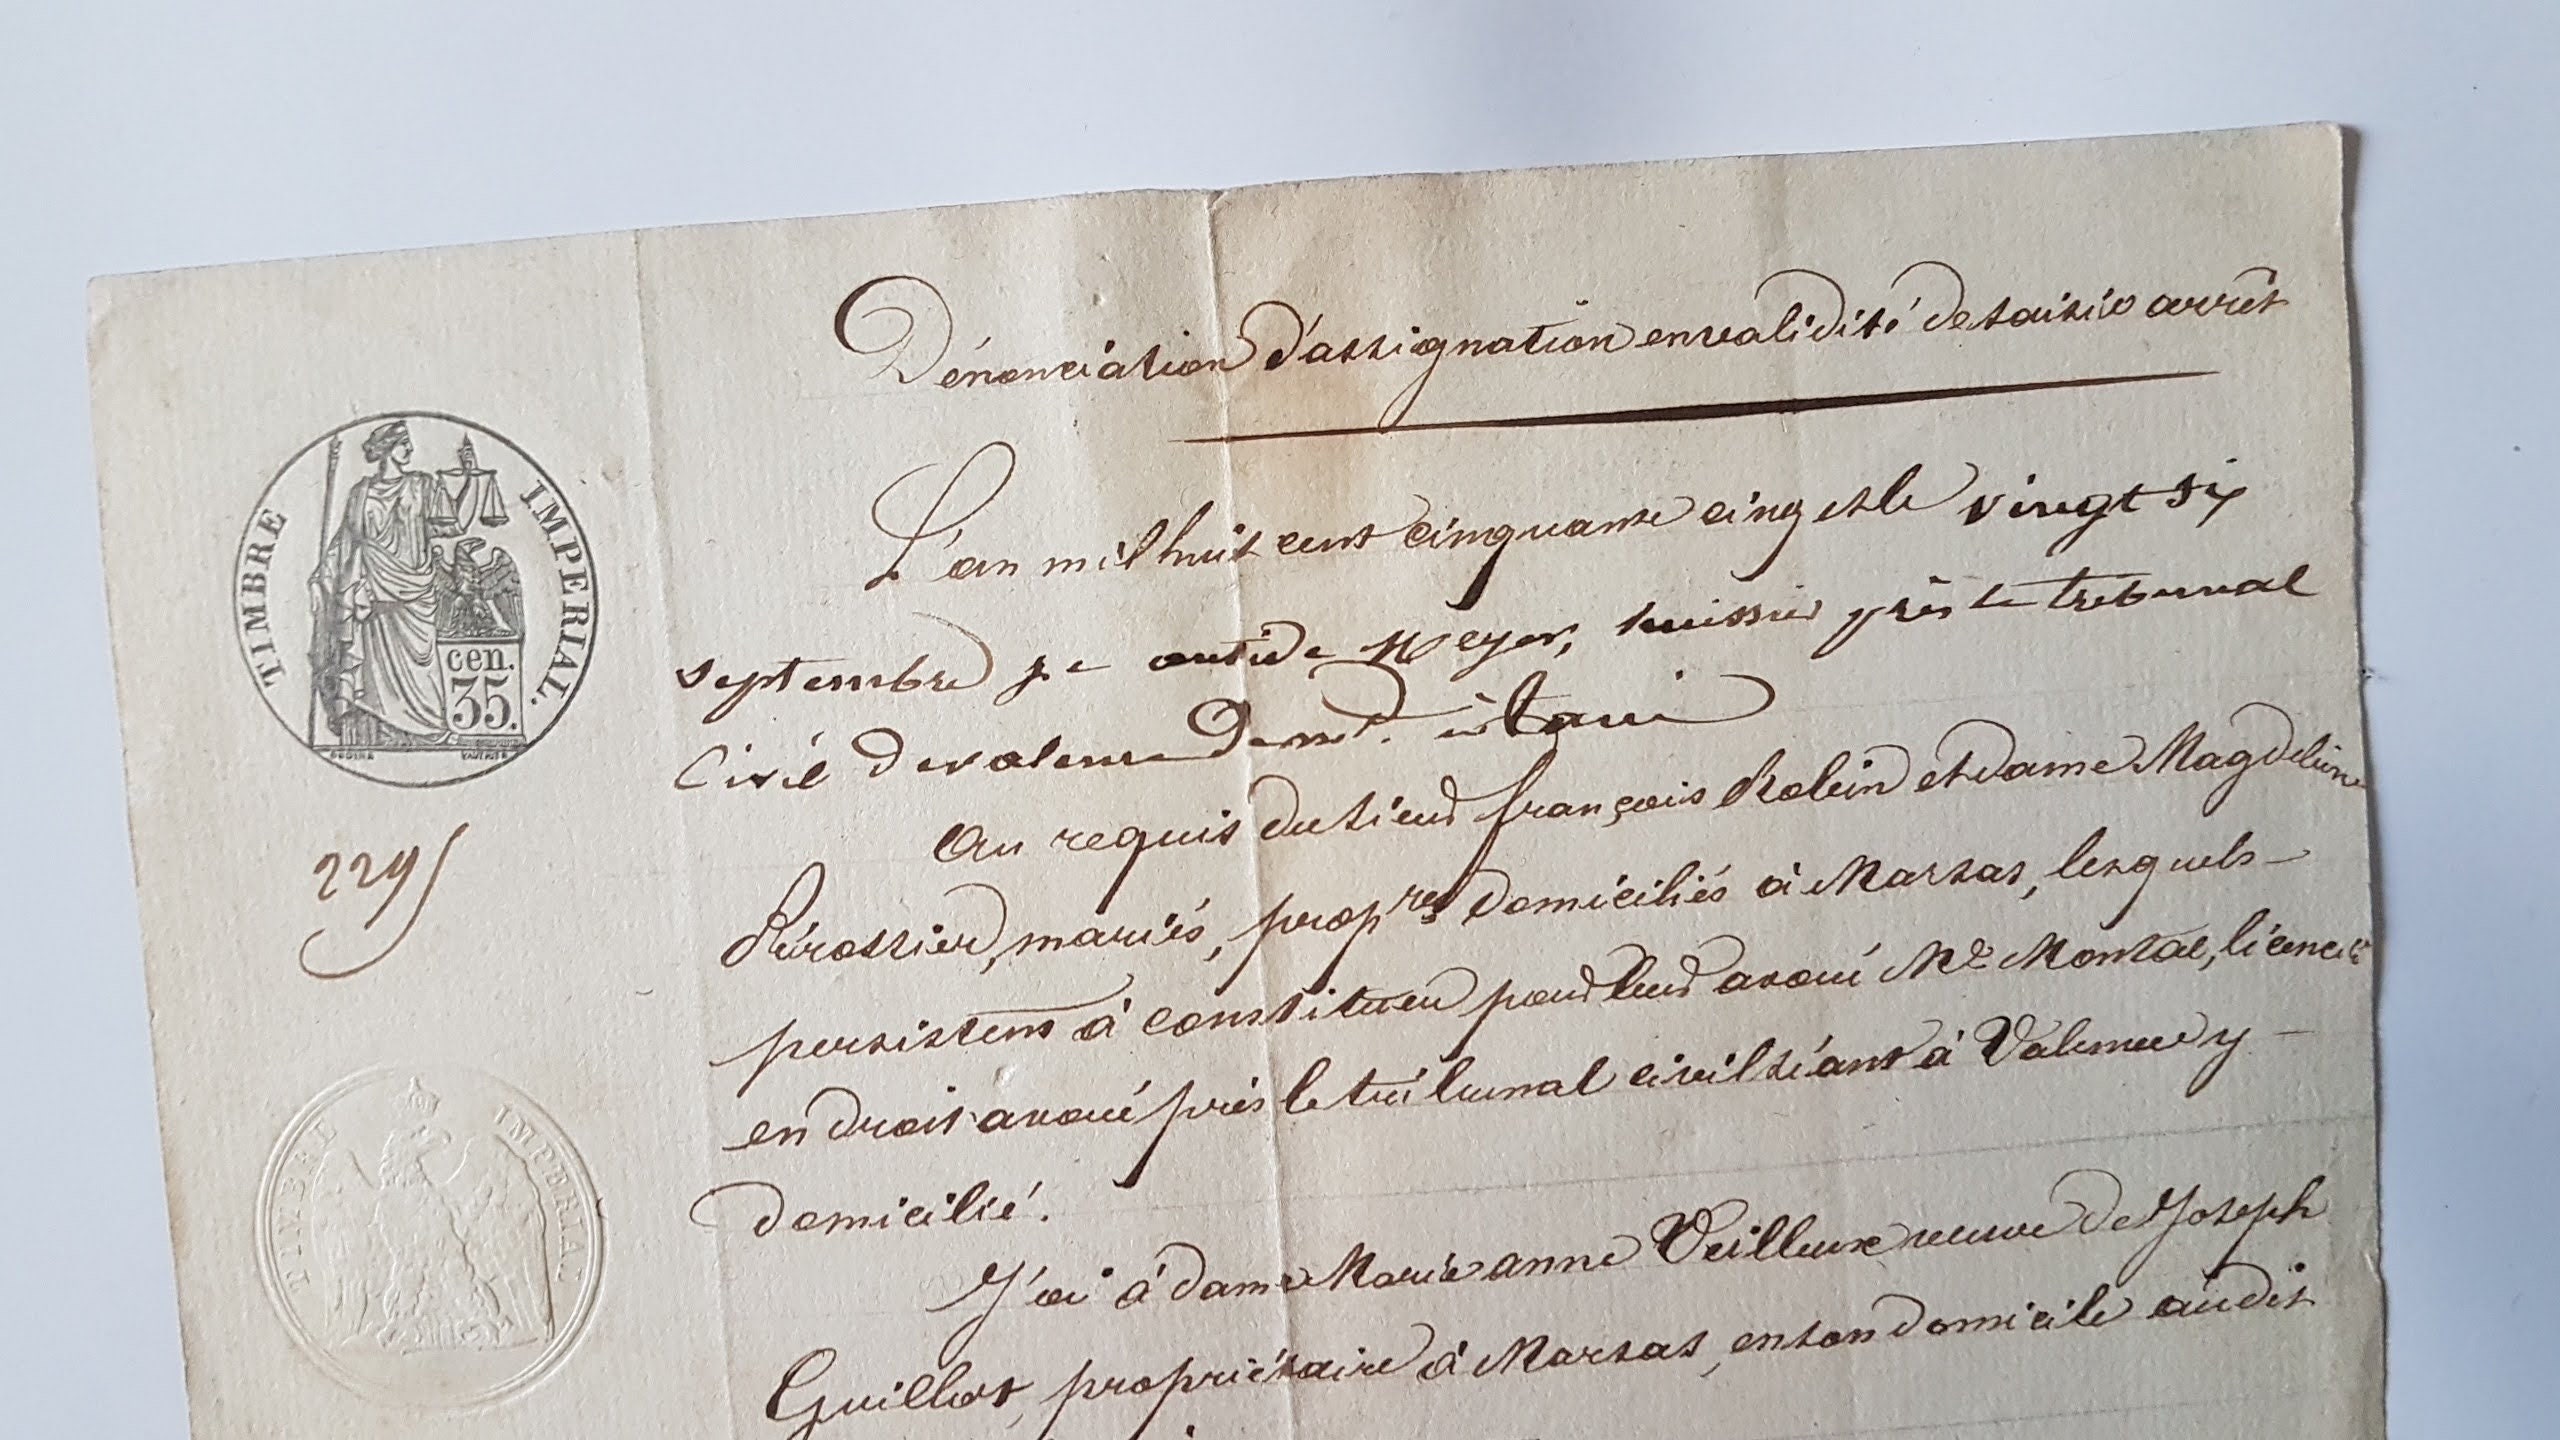 Dénonciation d'assignation en validité de saisie arrêt
TIMBRE IMPERIAL.
cen.
35.
L'an mil huit cent cinquante cinq et le vingt six
septembre je Meyer, huissier près le tribunal
Civil de valence à tain
2295
Au requis du sieur françois Robin et dame Magdeleine
Pérossier, mariés, propres domiciliés à Marsas, lesquels
persistent à constituer pour leur avoué Me Montal, licencié
en droit avoué près le tribunal civil séant à Valence y
domicilié.
TIMBRE IMPERIAL
J'ai à dame Marie anne Veilleux veuve de Joseph
Guillot, propriétaire à Marsas, en son domicile audit